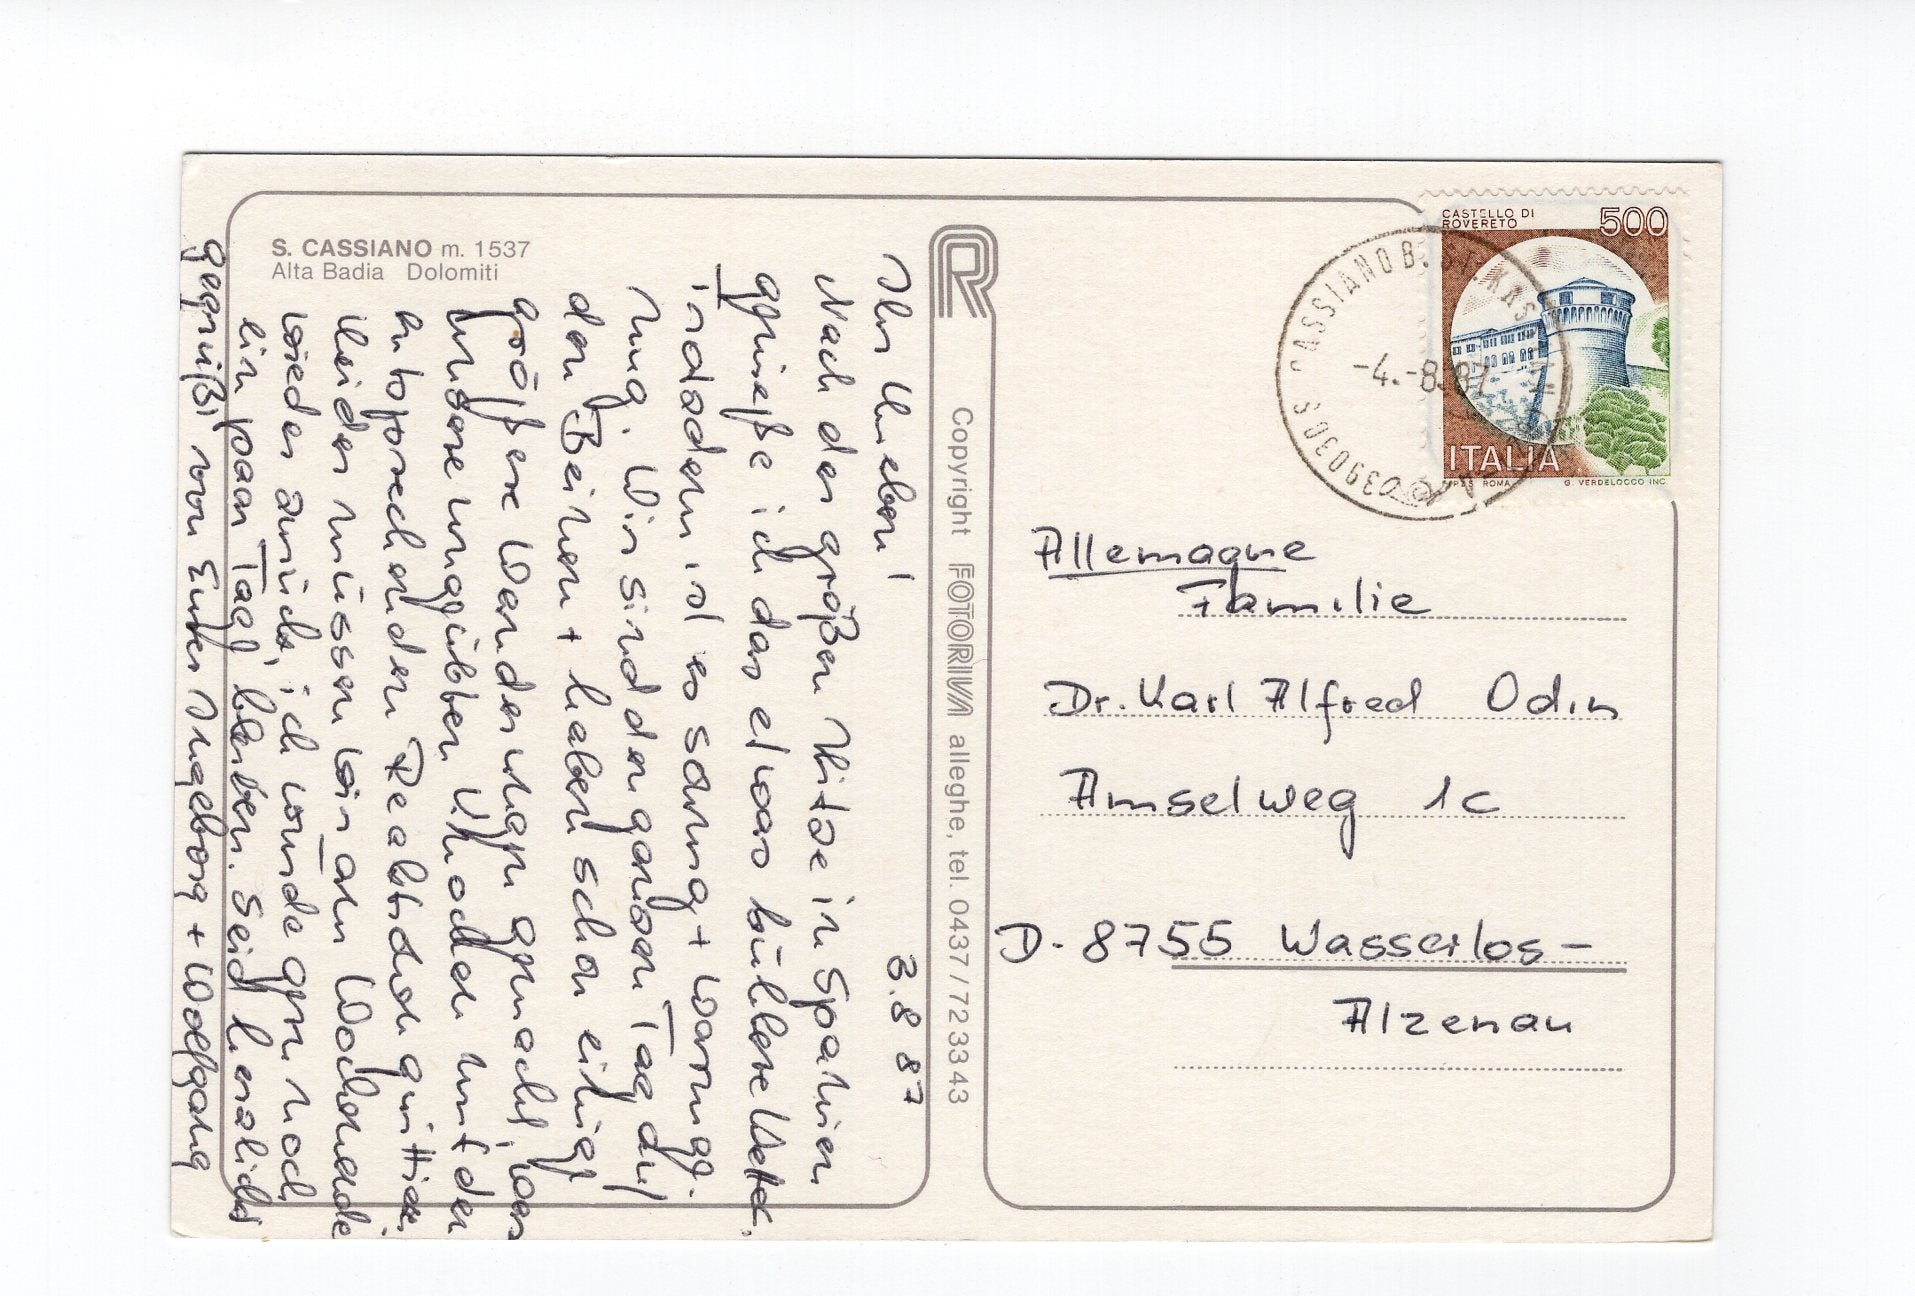 S. CASSIANO m. 1537
Alta Badia Dolomiti
3.8.87
Ihr Lieben!
Nach der großen Hitze in Spanien
genieße ich das etwas kühlere Wetter,
trotzdem ist es sonnig + warm
Wir sind den ganzen Tag auf
den Beinen + haben schon einige
größere Wanderungen gemacht, was
unsere Knochen mit der
entsprechenden Reaktion quittieren.
Leider müssen wir am Wochenende
wieder zurück, ich würde gern noch
ein paar Tage bleiben. Seid herzlichst
gegrüßt von Eurer Ingeborg + Wolfgang
R
Copyright FOTORIVA alleghe, tel. 0437/723343
CASTELLO DI
ROVERETO
500
ITALIA
I.P.Z.S. ROMA
G. VERDELOCCO INC.
39030 S CASSIANO B. ST. KAS
-4.-8.87
Allemagne
Familie
Dr. Karl Alfred Odin
Amselweg 1c
D-8755 Wasserlos-
Alzenau